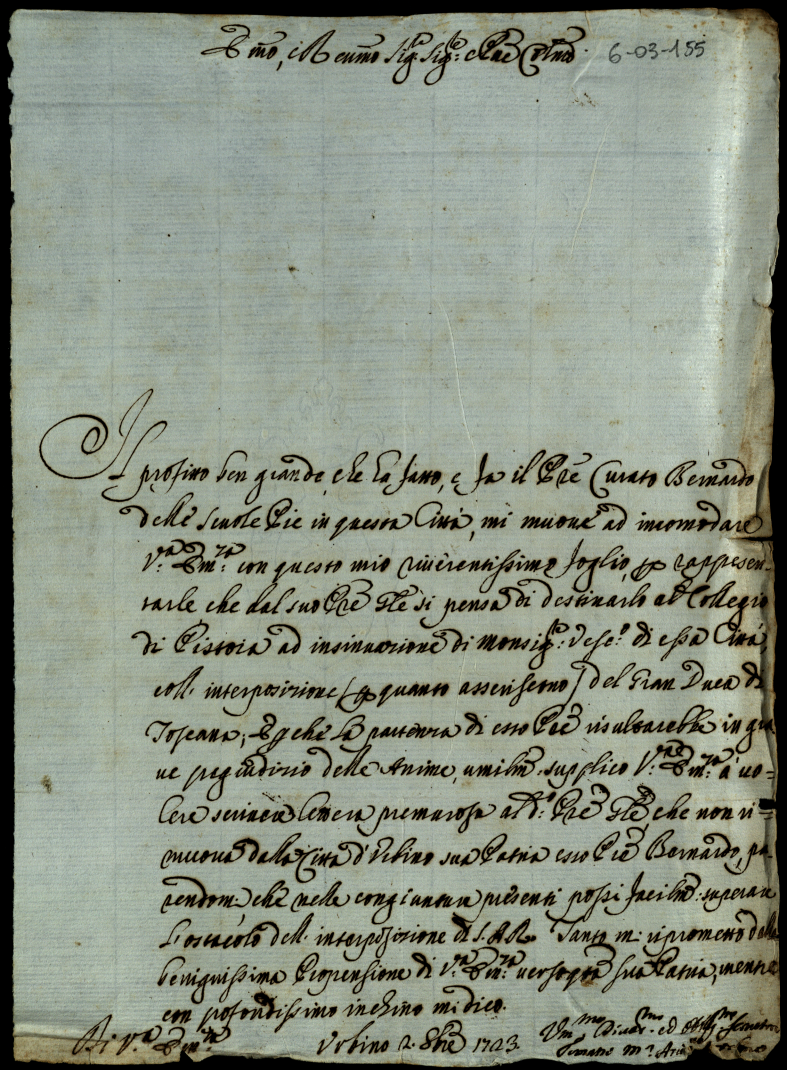 Emo, e Revmo Sig.re Sig.re e Pne Colmo 6-03-155
Il profitto ben grande, che ha fatto, e fa il Pre Curato Bernardo
delle Scuole Pie in questa Città, mi muove ad incomodare
V.ra Em.za con questo mio riverentissimo foglio, p rappresen-
tarle che dal suo Pre Gle si pensa di destinarlo al Collegio
di Pistoia ad insinuazione di Monsig.re Vesc.o di essa Città,
coll' interposizione (p quanto asseriscono) del Gran Duca di
Toscana; E pche la partenza di esso Pre risultarebbe in gra-
ve pregiudizio delle Anime, umilm. supplico V.ra Em.za à vo-
lere scrivere lettera premurosa al d.o Pre Gle, che non ri-
muova dalla Città d'Urbino sua Patria esso Pre Bernardo, pa-
rendom. che nelle congiunture presenti possi facilm. superare
l'ostacolo dell' interposizione di S.A.R. Tanto m: riprometto dalla
benignissima Propensione di V.ra Em.za verso questa sua Patria, mentre
con profondissimo inchino mi dico.
Di V.ra Em.za
Urbino 2. 8bre 1723
Um.mo Divot.mo ed Obblig.mo Servitore